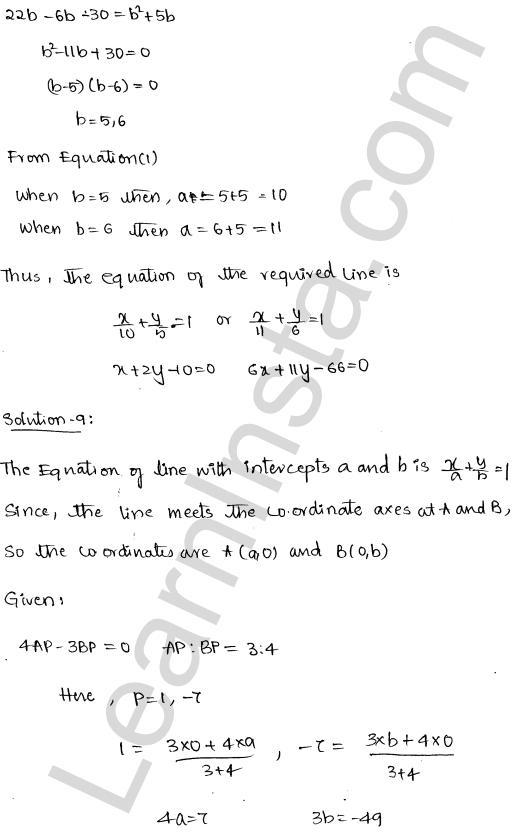 22b - 6b + 30 = b² + 5b
b² - 11b + 30 = 0
(b-5) (b-6) = 0
b = 5, 6
From Equation(1)
When b = 5 then, a = 5+5 = 10
When b = 6 then a = 6+5 = 11
Thus, The equation of the required line is
x/10 + y/5 = 1 or x/11 + y/6 = 1
x + 2y - 10 = 0 6x + 11y - 66 = 0
Solution-9:
The Equation of line with intercepts a and b is x/a + y/b = 1
Since, the line meets the co.ordinate axes at A and B,
So the co ordinates are A (a,0) and B(0,b)
Given:
4AP - 3BP = 0 AP : BP = 3:4
Here, P = 1, -7
1 = (3×0 + 4×a)/(3+4), -7 = (3×b + 4×0)/(3+4)
4a = 7 3b = -49
LearnInsta.com